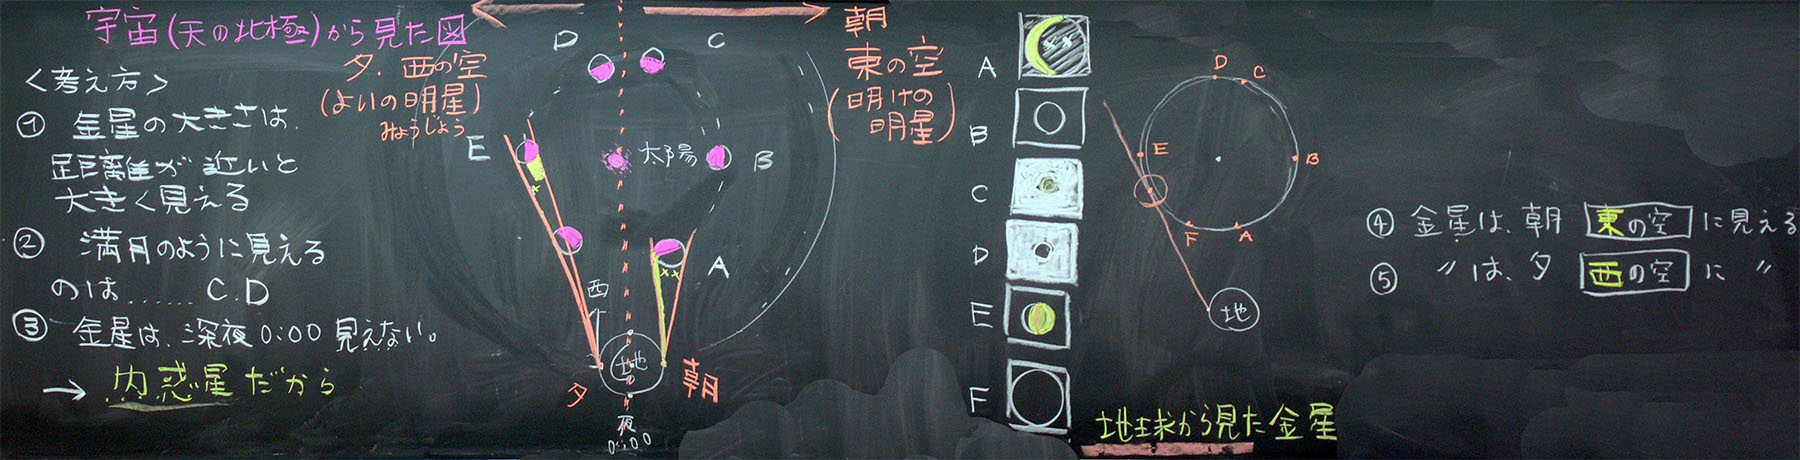 宇宙(天の北極)から見た図
<考え方>
① 金星の大きさは、
距離が近いと
大きく見える
② 満月のように見える
のは……C.D
③ 金星は、深夜0:00見えない。
→ 内惑星だから
夕.西の空
(よいの明星)
みょうじょう
朝
東の空
(明けの
明星)
D
C
E
太陽
B
A
西
地
夕
朝
夜
0:00
A
B
C
D
E
F
D
C
E
B
F
A
地
地球から見た金星
④ 金星は、朝 東の空 に見える
⑤ 〃は、夕 西の空 に 〃